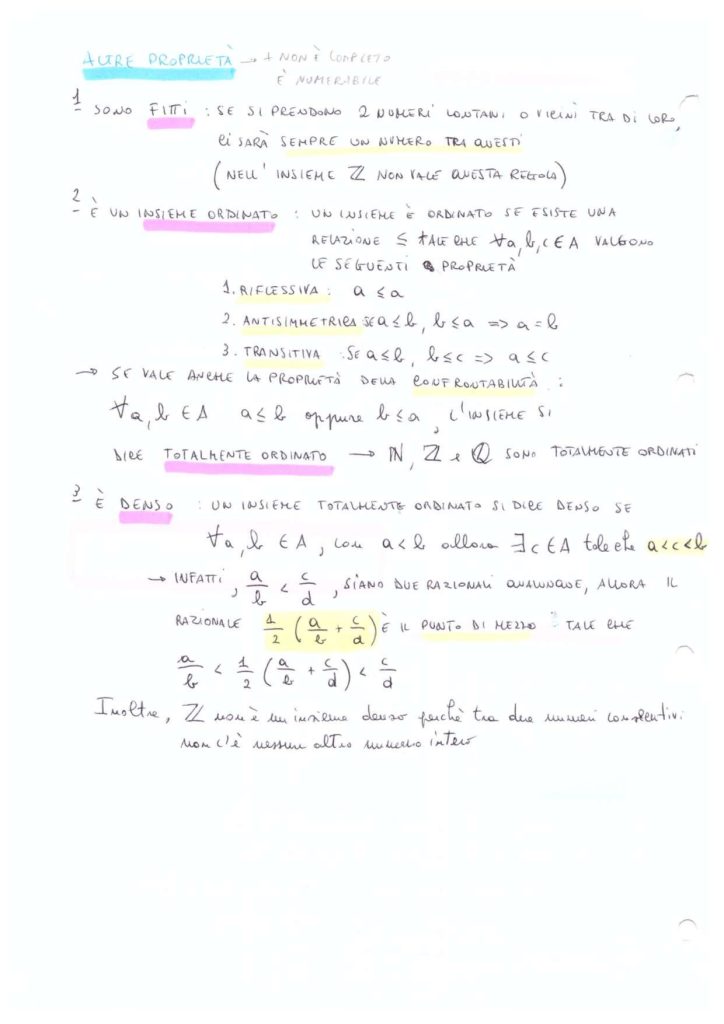 ALTRE PROPRIETÀ → + NON È COMPLETO
È NUMERABILE
1 SONO FITTI : SE SI PRENDONO 2 NUMERI LONTANI O VICINI TRA DI LORO,
CI SARÀ SEMPRE UN NUMERO TRA QUESTI
(NELL' INSIEME ℤ NON VALE QUESTA REGOLA)
2 È UN INSIEME ORDINATO : UN INSIEME È ORDINATO SE ESISTE UNA
RELAZIONE ≤ TALE CHE ∀a, b, c ∈ A VALGONO
LE SEGUENTI PROPRIETÀ
1. RIFLESSIVA : a ≤ a
2. ANTISIMMETRICA SE a ≤ b, b ≤ a => a = b
3. TRANSITIVA : SE a ≤ b, b ≤ c => a ≤ c
→ SE VALE ANCHE LA PROPRIETÀ DELLA CONFRONTABILITÀ :
∀a, b ∈ A a ≤ b oppure b ≤ a, L'INSIEME SI
DICE TOTALMENTE ORDINATO → ℕ, ℤ e ℚ SONO TOTALMENTE ORDINATI
3 È DENSO : UN INSIEME TOTALMENTE ORDINATO SI DICE DENSO SE
∀a, b ∈ A, con a < b allora ∃c ∈ A tale che a < c < b
→ INFATTI, a/b < c/d, SIANO DUE RAZIONALI QUALUNQUE, ALLORA IL
RAZIONALE 1/2 (a/b + c/d) È IL PUNTO DI MEZZO : TALE CHE
a/b < 1/2 (a/b + c/d) < c/d
Inoltre, ℤ non è un insieme denso perchè tra due numeri consecutivi
non c'è nessun altro numero intero